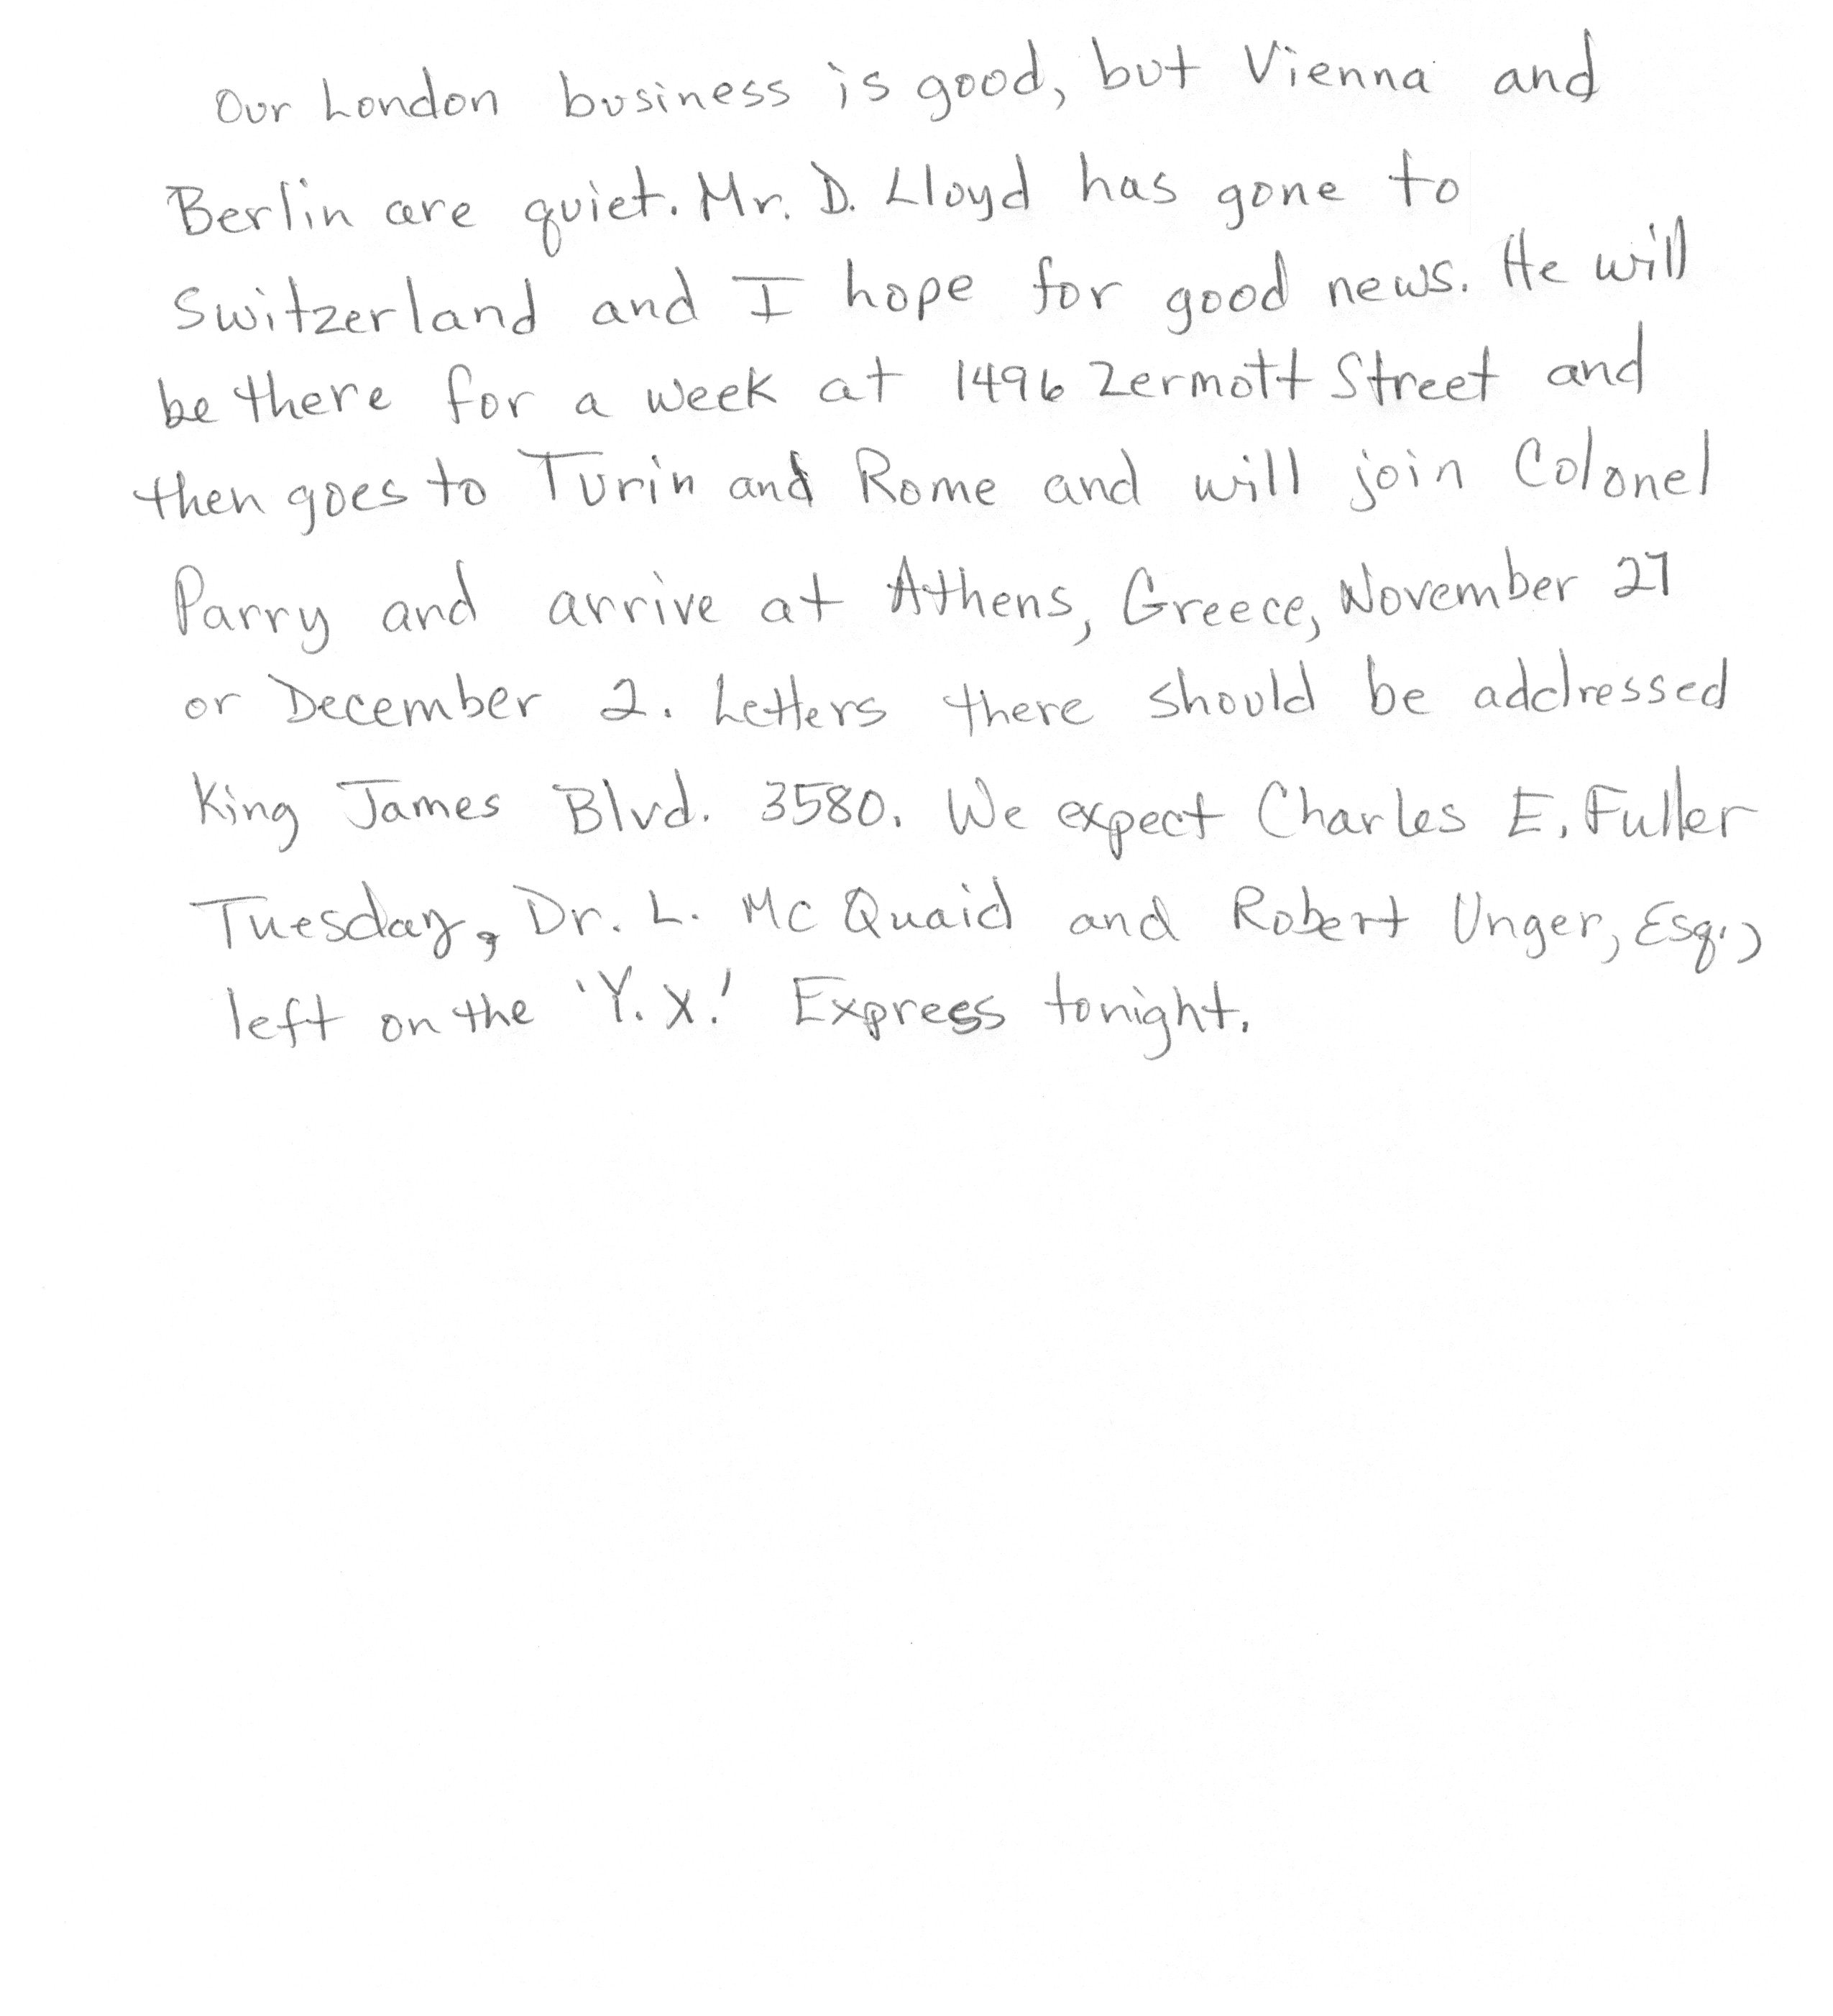 Our London business is good, but Vienna and
Berlin are quiet. Mr. D. Lloyd has gone to
Switzerland and I hope for good news. He will
be there for a week at 1496 Zermott Street and
then goes to Turin and Rome and will join Colonel
Parry and arrive at Athens, Greece, November 27
or December 2. Letters there should be addressed
King James Blvd. 3580. We expect Charles E. Fuller
Tuesday, Dr. L. Mc Quaid and Robert Unger, Esq.,
left on the 'Y. X.' Express tonight.